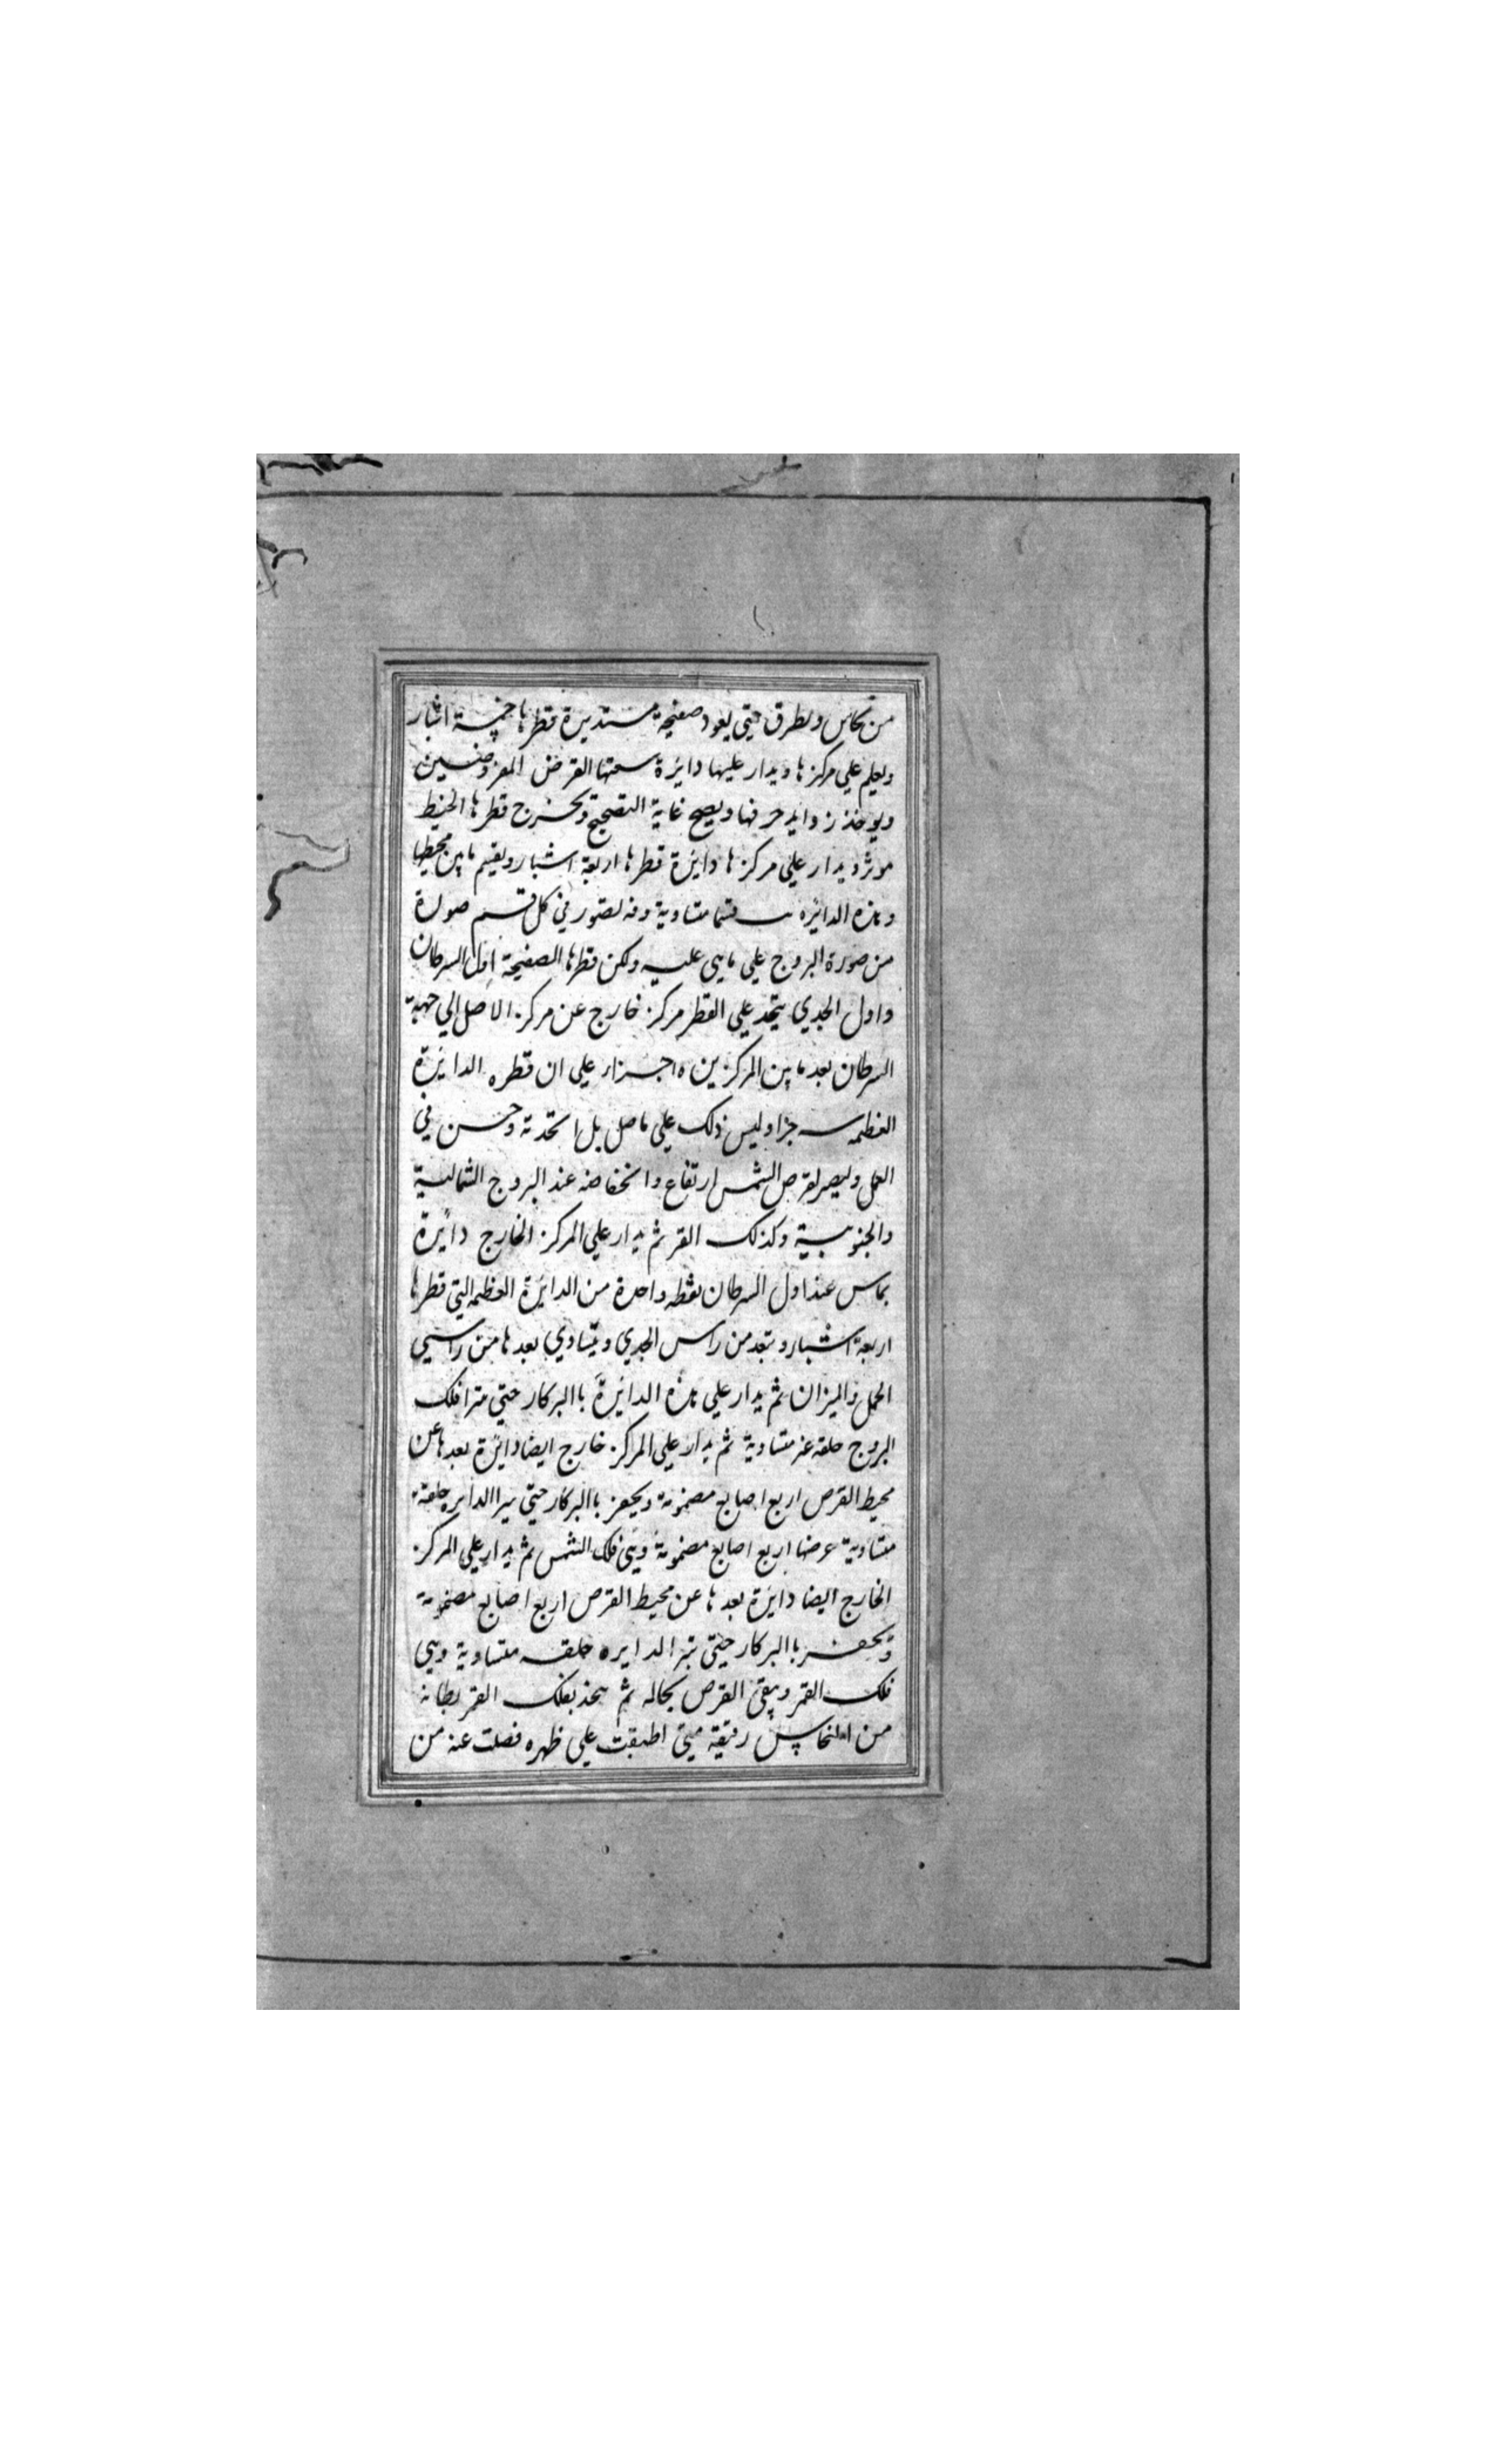 من نحاس ويطرق حتي يعود صفيحة مستديرة قطرها خمسة اشبار
ويعلم علي مركزها ويدار عليها دائرة سعتها القرض المفروضين
ويوخذ زوايد حرفها ويصحح غاية التصحيح ويخرج قطرها الخيط
موثر ويدار علي مركزها دائرة قطرها اربعة اشبار ويقيم مابين محيطها
وهذه الدائره قسما متساوية وفه تصور في كل قسم صورة
من صورة البروج علي ماهي عليه ولكن قطرها الصفيحة اول السرطان
واول الجدي يتخد علي القطر مركز خارج عن مركز الاصل الي جهة
السرطان بعد مابين المركزين ه اجزار علي ان قطره الدائرة
العظمه جزا وليس ذلك علي ماصل بل استخدته وحسن في
العمل وليصر لقرص الشمس ارتفاع وانخفاضه عند البروج الشمالية
والجنوبية وكذلك القر ثم يدار علي المركز الخارج دائرة
بماس عند اول السرطان نقطه واحدة من الدائرة العظمه التي قطرها
اربعة اشبار وتبعد من راس الجدي ويتساوي بعدها من راسي
الحمل والميزان ثم يدار علي هذه الدائرة باالبركار حتي مترا فلك
البروج حلقه غر متساوية ثم يدار علي المركز خارج ايضا دائرة بعدها عن
محيط القرص اربع اصابع مضمومة ويحفر باالبركار حتي سرا الدايره حلقة
متساوية عرضها اربع اصابع مضمومة وهي فلك الشمس ثم يدار علي المركز
الخارج ايضا دائرة بعدها عن محيط القرص اربع اصابع مضمومة
ويحفر باالبركار حتي تبر الدايره حلقه متساوية وهي
فلك القمر ويبقي القرص بحاله ثم يتخذ بفلك القمر بطانة
من النحاس رقيقة متي اطبقت علي ظهره فصلت عنه من